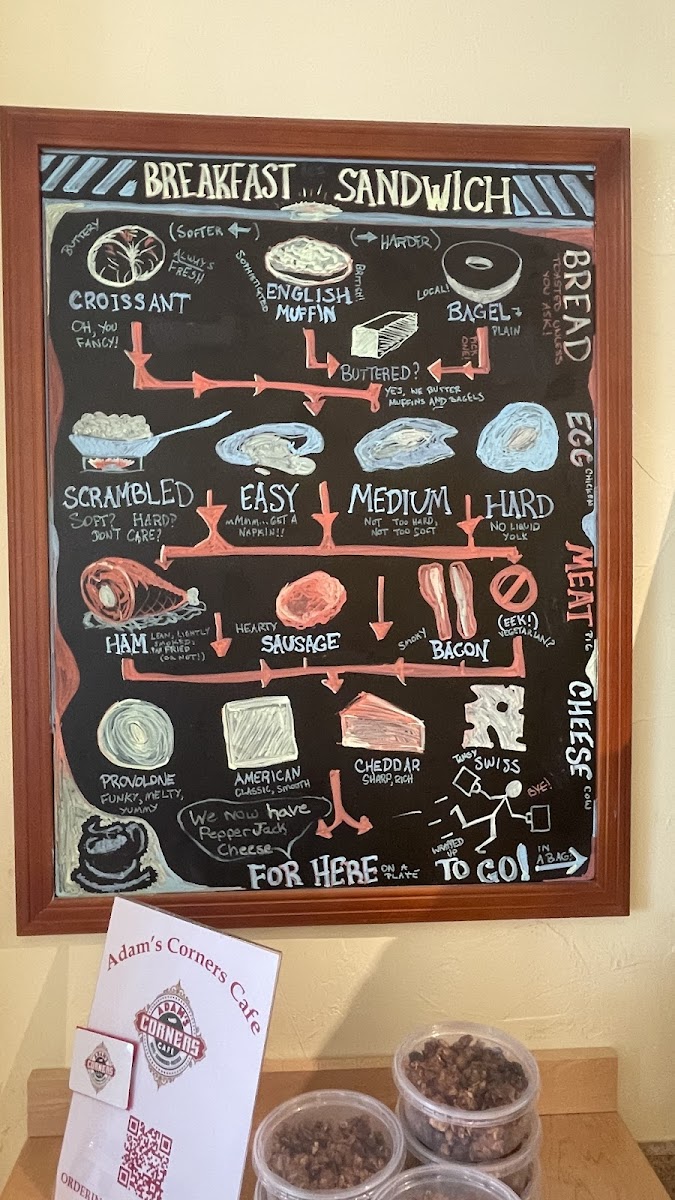 BREAKFAST SANDWICH
BUTTERY
(SOFTER ←)
(→ HARDER)
ALWAYS FRESH
SOPHISTICATED
BRITISH!
LOCAL!
CROISSANT
ENGLISH
MUFFIN
BAGEL
PLAIN
OH, YOU
FANCY!
PICK ONE!
BUTTERED?
YES, WE BUTTER
MUFFINS AND BAGELS
BREAD
TOASTED UNLESS
YOU ASK!
SCRAMBLED
SOFT? HARD?
DON'T CARE?
EASY
MMMM...GET A
NAPKIN!!
MEDIUM
NOT TOO HARD,
NOT TOO SOFT
HARD
NO LIQUID
YOLK
EGG
CHICKEN
HAM
LEAN, LIGHTLY
SMOKED;
PAN FRIED
(OR NOT!)
HEARTY
SAUSAGE
SMOKY
BACON
(EEK!)
VEGETARIAN?
MEAT
PIG
PROVOLONE
FUNKY, MELTY,
YUMMY
AMERICAN
CLASSIC, SMOOTH
CHEDDAR
SHARP, RICH
TANGY
SWISS
CHEESE
COW
We now have
PepperJack
Cheese
BYE!
FOR HERE
ON A
PLATE
WRAPPED
UP
TO GO!
IN
A BAG!
Adam's Corners Cafe
ADAM'S
CORNERS
CAFE
CORNERS